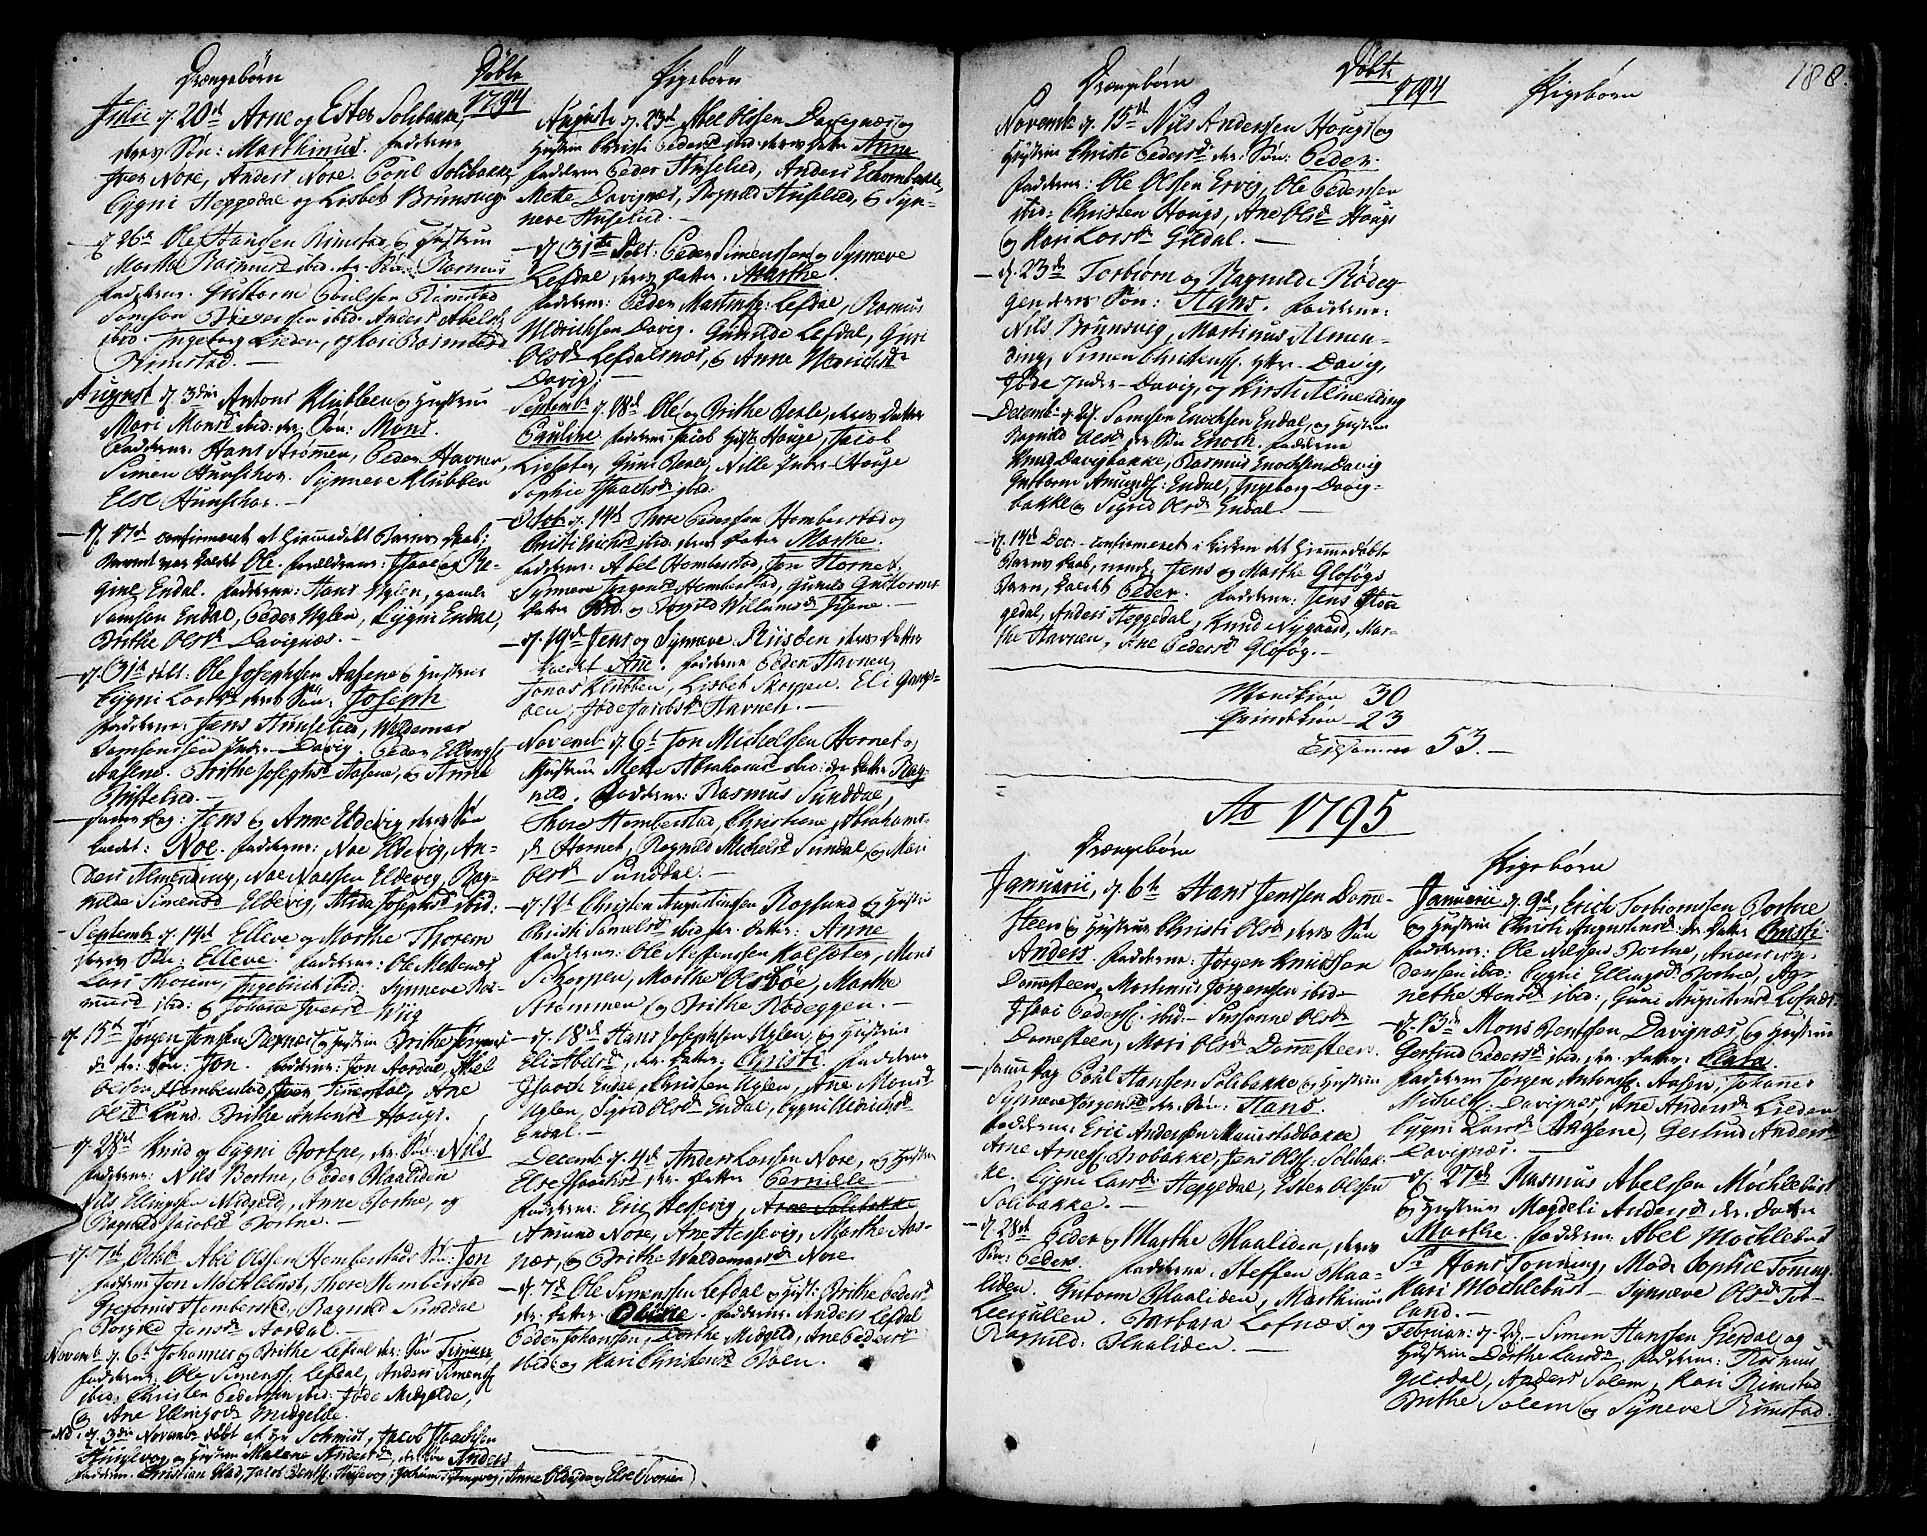 Drængebørn
Døbte
1794
Pigebørn
Julii d. 20de Arne og Ester Solibakke,
deres Søn: Marthinus. Fadderne
Iver Nore, Anders Nore. Poul Solibakke
Lygni Heggedal og Lisbet Brunsvig
d. 26de Ole Hanssen Rimstad, og Hustrue
Marthe Rasmusd. ibid. der. Søn: Rasmus
Fadderne. Guttorm Poulssen Rimstad
Samson Iverssen ibid. Anders Abelss.
ibid. Ingeborg Lieden, og Kari Rasmusd.
Rimstad.
August d. 3die Antons Klubben og Hustrue
Mari Monsd. ibid: der: Søn: Mons.
Fadderne: Hans Strømen, Peder Havnen,
Simen Hunskaar. Synneve Klubben
Else Hunskaar.
d. 17de confirmeret et hiemmedøbt Barnes Daab:
Barnet var kaldet Ole. Forældrene: Isaac og Regine
Endal. Fadderne: Hans Uglen, gamle
Samson Endal, Peder Uglen, Lygni Endal,
Brithe Olsd. Davignæs.
d. 31te døbt: Ole Josephsen Aasene og Hustrue
Lygni Larsd. deres Søn: Joseph
Fadderne: Jens Hunselid, Waldemar
Samsonssen Indre-Davig. Peder Ellingss.
Aasene. Brithe Josephsd. Aasene, og Anne
Samme Dag: Jens og Anne Eldevig deres Søn
kaldet: Noe. Fadderne: Noe Eldevig, Anders
Almending, Noe Noessen Eldevig, Ragnilde
Simensd. Eldevig, Alida Josephsd. ibid:
Septembr. d. 14de Elleve og Marthe Thorem
deres Søn: Elleve. Fadderne: Ole Mettenæs
Lars Thorem, Ingebrict ibid: Synneve Rasmusd.
ibid: og Johana Iversd. Wiig
d. 15de Jørgen Jonsen Reznæs og Hustrue Brithe Jørgensd.
der: Søn: Jon. Fadderne: Jon Aardal, Abel
Olsen Hombersstad, Iver Timestøl, Ane
Brithe Antonsd. Hougs.
d. 28de Knud og Lygni Bortne, der. Søn: Nils
Fadderne: Nils Bortne, Peder Maaliden
Nils Ellingssen Midgeld, Anne Bortne, og
Ragnild Jacobsd. Bortne.
d. 7de Octbr Abel Olssen Homberstads Søn: Jon
Faddern Jon Mochlebust, Thore Homberstad
Gregorius Homberstad, Ragnild Sunddal
Borgild Jonsd. Aardal.
Novemb d. 6te Johannes og Brithe Lefdal der: Søn Simen,
Fadderne: Ole Simenss. Lefdal, Anders Simenss.
ibid: Christen Pederssen ibid: Jøde Midgelde,
og Ane Ellingsd. Midgelde.
NB. d. 3die Novembr. døbt af Hr Schmidt, Jacob Isachsen
og Hustrue Malene Andersd. der Søn Anders
Augusti d. 23de Abel Olssen Davignæs og
Hustrue Christi Pedersd. ibid. deres Datter Anne
Fadderne Peder Hunselied, Anders Elhombakke,
Mette Davignes, Ragnild Hunselied, og Synneve
Hunselied.
d. 31te Døbt: Peder Simenssen og Synneve
Lefdal deres Datter. Marthe.
Fadderne: Peder Martinss: Lefdal, Rasmus
Uldrichsen Davig. Gunilde Lefdal, Guri
Olsd. Lefdalsnæs, og Anne Henrichsd.
Davig.
Septembr. d. 18de Ole og Brithe Berle, deres Datter
Pauline. Fadderne: Jacob Hougs, Jacob
Liesæter, Guni Berle, Nille Indre-Houge
Sophie Isaachsd. ibid:
Octobr. d. 14de Thore Pederssen Homberstad og
Christi Erichsd. ibid. deres Datter Marthe.
Fadderne: Abel Homberstad, Jon Hornet.
Synneve Jørgensd. Homberstad, Gunild Guttorms
d. 19de Jens og Synneve Rusten deres Datter
kaldet Ane. Fadderne Peder Havnen,
Jonas Klubben, Lisbet Skorpen. Eli
Jøde Jacobsd. Havnen.
Novemb. d. 6te Jon Michelssen Hornet og
Hustrue Mette Abrahamsd. ibid: der Datter Ragnild.
Fadderne: Rasmus Sunddal,
Thore Homberstad, Christiane Abrahamsd.
Hornet, Ragnild Michelsd. Sundal, og Mari
Olsd. Sunddal.
d. 12te Christen Augustinssen Roglund og Hustrue
Christi Samuelsd. ibid. der. Datter: Anne
Fadderne: Ole Steffenssen Kalsæter, Moni
Schorpen, Marthe Olsbøe, Marthe
Strømmen og Brithe Rødeggen.
d. 18de Hans Josephssen Uglen, og Hustrue
Elisabetsd., der: Datter: Christi. Fadderne
Isaach Endal, Christen Uglen, Ane Monsd.
Uglen, Sigrid Olsd. Endal, Lygni Uldrichsd.
Endal.
Decemb d. 4de Anders Larsen Nore, og Hustrue
Else Isaachsd. der: Datter Pernille
Fadderne: Eric Hessevig, Arne Solibakke
Amund Nore, Ane Hessevig, Marthe Aasnær,
og Brithe Waldemarsd. Nore
d. 7de Ole Simenssen Lefdal og Hust: Brithe Pedersd.
der. Datter. Oline. Fadderne Anders Lefdal
Peder Johanssen, Dorthe Midgeld, Ane Pedersd.
ibid: og Kari Christensd. Bøen.
Fadderne. Christian Glad, Jacob
Drængebørn
Døbte
1794
Pigebørn
188
Novemb d. 15de Nils Anderssen Hougs og
Hustrue Christi Pedersd. der: Søn: Peder.
Fadderne: Ole Olssen Ervig, Ole Pedersen
ibid: Christen Hougs, Ane Olsd. Hougs
og Kari Larsd. Gildal.
d. 23de Torbiørn og Ragnilde Rødeggen
deres Søn: Hans. Fadderne:
Nils Brunsvig, Martinus Almending,
Simen Christenss. Yttre-Davig,
Jøde Indre-Davig, og Kirsti Almending
Decemb. d. 27. Samson Enochsen Endal, og Hustrue
Ragnild Olsd. der. Søn Enoch. Fadderne
Knud Davigbakke, Rasmus Enochsen Davig
Guttorm Amundss: Endal, Ingeborg Davigbakke
og Sigrid Olsd. Endal.
d. 14de Dec. confirmeret i Kirken det hiemmedøbte
Barns Daab, neml: Jens og Marthe Gloføgs
Barn, kaldet Peder. Fadderne: Jens
Anders Heggedal, Knud Nygaard, Marthe
Havnen, Ane Pedersd. Gloføg.
Mandkiøn 30
Qvindkiøn 23
Tilsammen 53.
Ao 1795
Drængebørn
Pigebørn
Januarii, d. 6te Hans Jenssen Domesteen
og Hustrue Christi Olsd. deres Søn
Anders. Fadderne: Jørgen Knudssen
Domesteen, Mortinus Jørgensen ibid
Isaac Pederss. ibid. Susanne Olsd.
Domesteen, Mari Olsd. Domesteen.
Samme Dag Poul Hanssen Solibakke og Hustrue
Synneve Jørgensd. der: Søn: Hans.
Fadderne: Eric Anderssen Maurstadbakke
Arne Arness. Brobakke, Jens Olss: Solibakke.
Lygni Larsd. Heggedal, Ester Olssen
Solibakke.
d. 28de Peder og Marthe Maaliden, deres
Søn: Peder. Fadderne. Steffen Maaliden.
Guttorm Maaliden, Marthinus
Leergullen. Barbara Lofnæs og
Ragnild Maaliden.
Januarii d. 9de, Erich Torbiørnssen Bortne
og Hustrue Christi Augustinsd: der Datter Christi.
Fadderne: Ole Nilssen Bortne,
ibid: Lygni Ellingsd. Bortne, Agnethe
Hansd. ibid:, Guni Augustinsd. Lofnæs
d. 13de Mons Bentssen Davignæs og Hustrue
Gertrud Pedersd. ibid. der. Datter: Clara.
Fadderne Jørgen Antonss. Aasen, Johanes
Michelss: Davignes, Ane Andersd. Lieden
Lygni Larsd. Aasene, Gertrud Andersd.
Davignæs.
d. 27de Rasmus Abelssen Mochlebust
og Hustrue Magdeli Andersd. der. Datter
Marthe. Fadderne: Abel Mochlebust
Sr Hans Tonning, Mad: Sophie Toning.
Kari Mochlebust, Synneve Olsd.
Februar: d. 2de Simen Hanssen Gierdal og
Hustrue Dorthe Larsd. Fadderne: Rasmus
Gierdal, Anders Solem, Kari Rimstad
Brithe Solem og Syneve Rimstad.